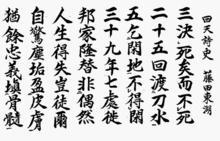 回天詩史 藤田東湖
三決死矣而不死
二十五回渡刀水
五乞閑地不得閑
三十九年七處徙
邦家隆替非偶然
人生得失豈徒爾
自驚塵垢盈皮膚
猶餘忠義塡骨髓